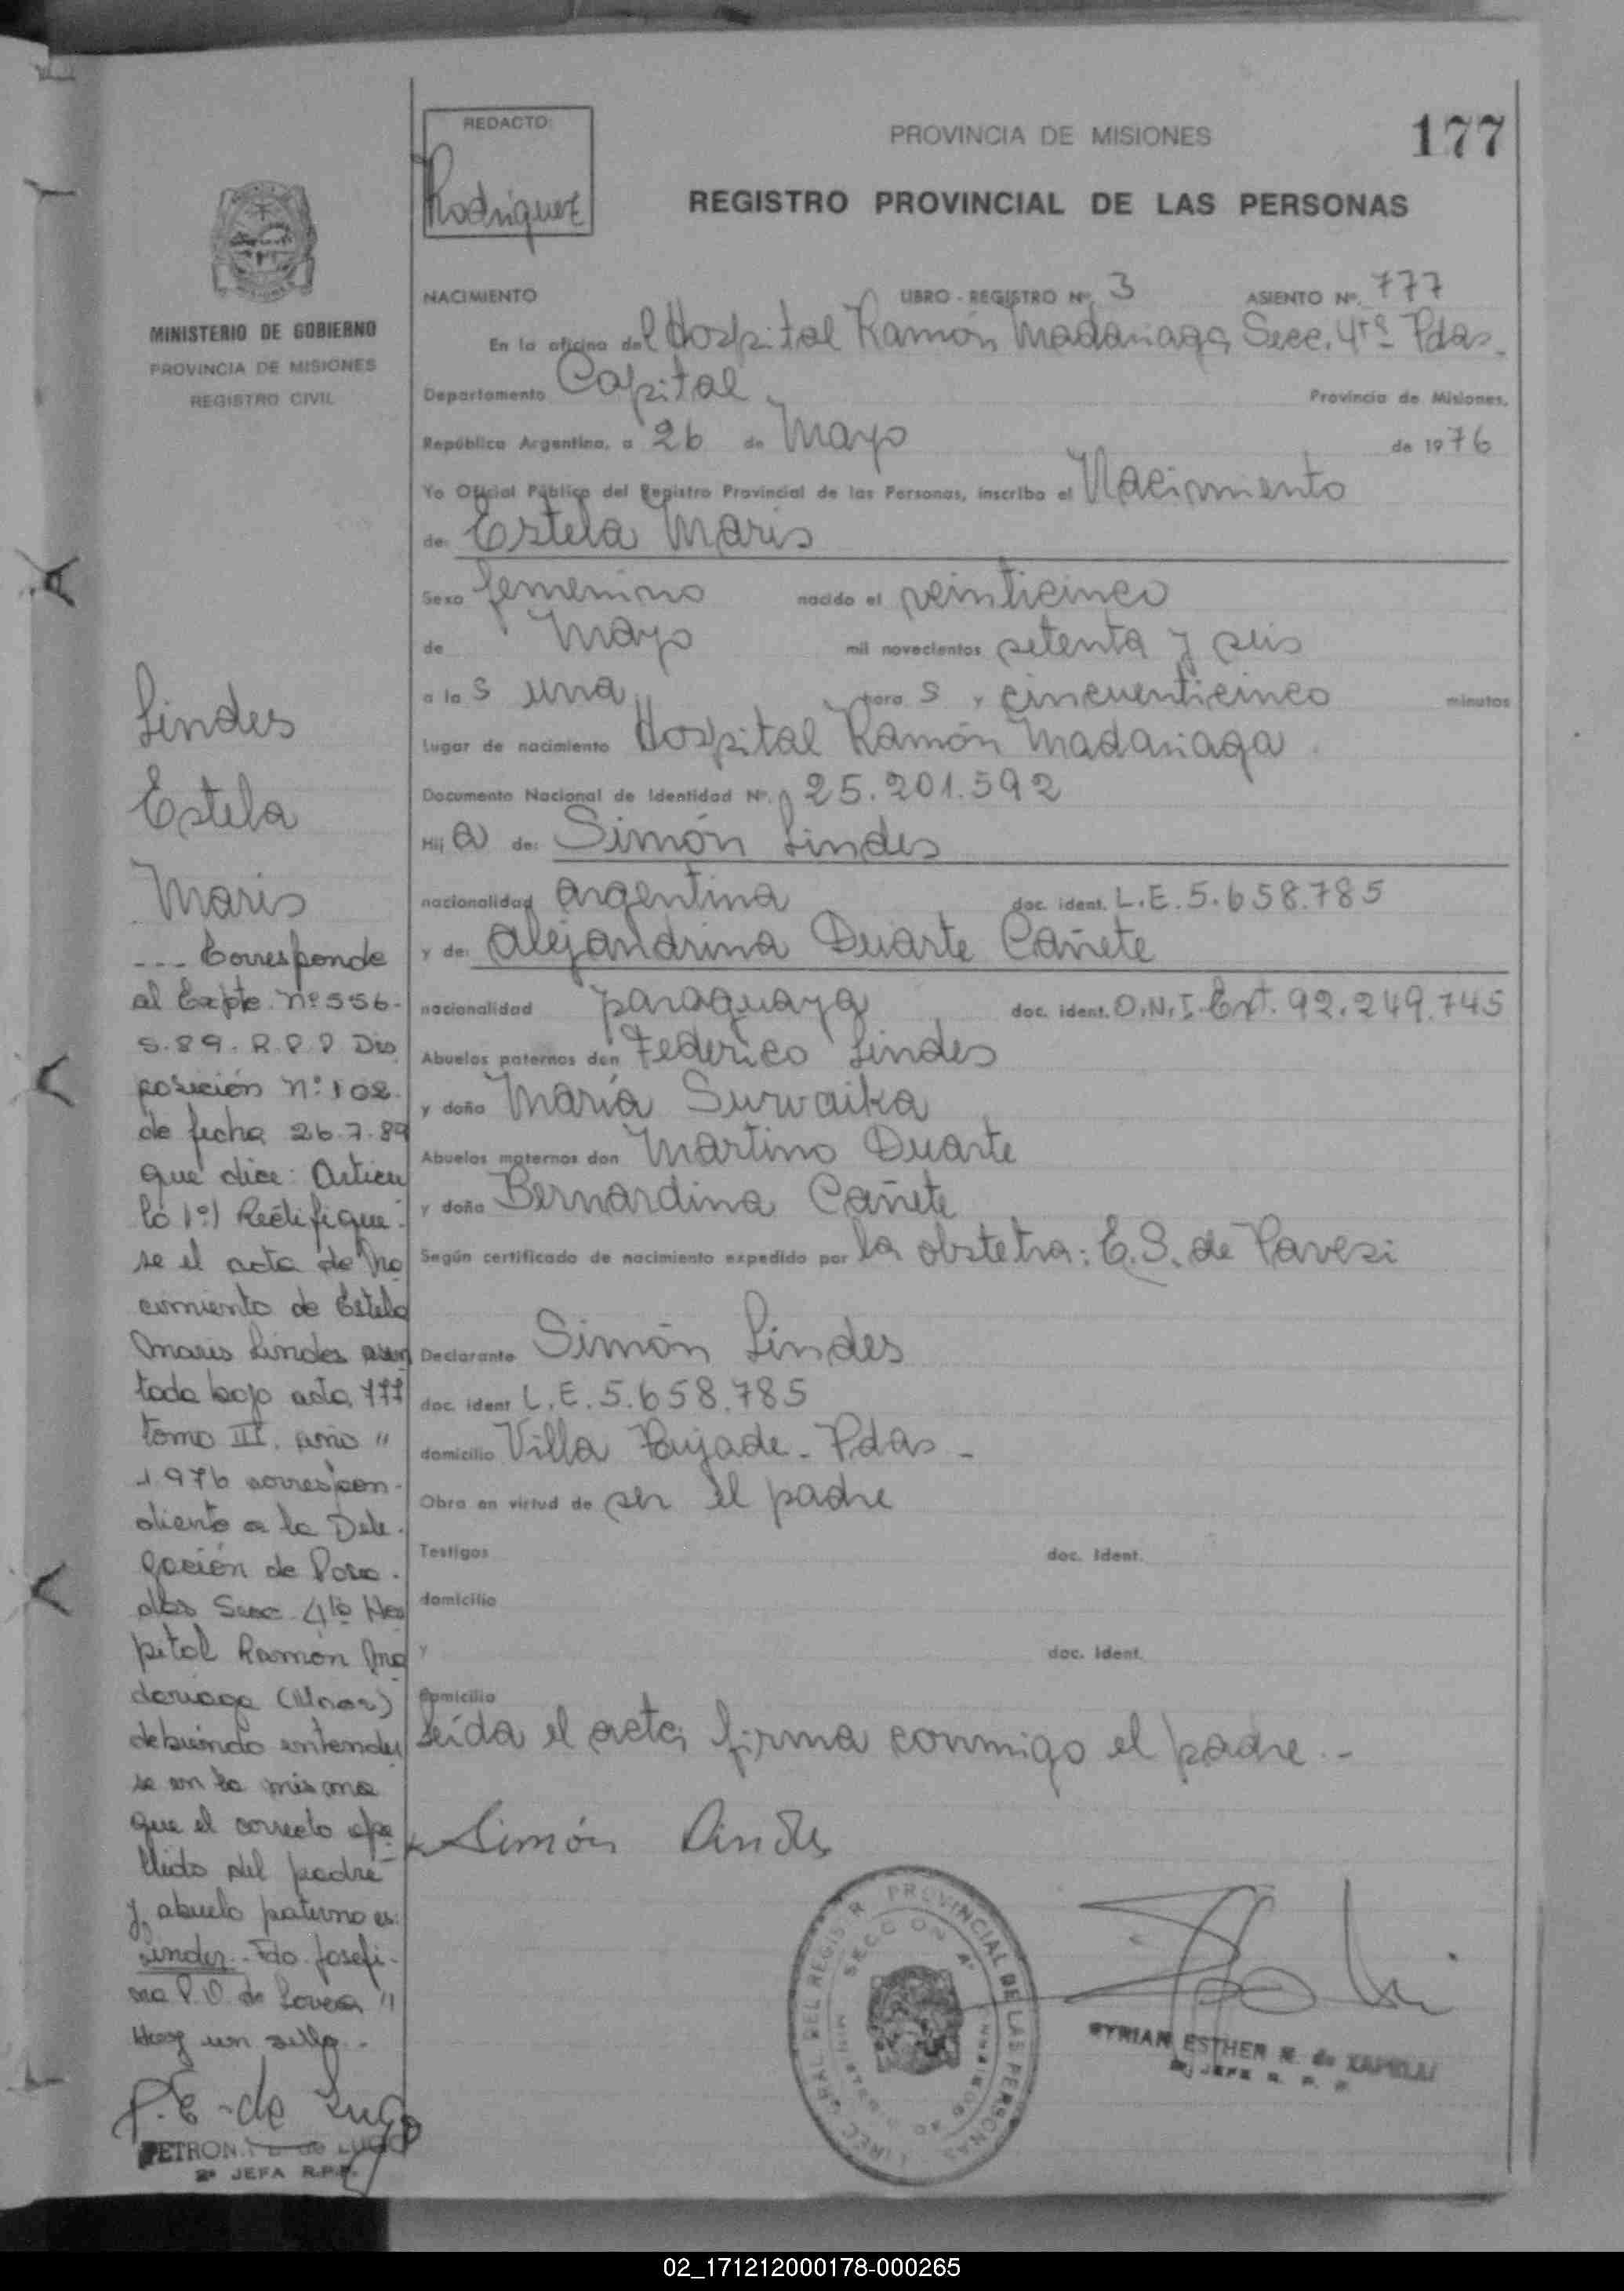 REDACTO:
Rodriguez
PROVINCIA DE MISIONES
177
REGISTRO PROVINCIAL DE LAS PERSONAS
MINISTERIO DE GOBIERNO
PROVINCIA DE MISIONES
REGISTRO CIVIL
NACIMIENTO LIBRO - REGISTRO Nº 3 ASIENTO Nº. 777
En la oficina del Hospital Ramón Madariaga Secc. 4ta Pdas.
Departamento Capital Provincia de Misiones,
República Argentina, a 26 de Mayo de 1976
Yo Oficial Público del Registro Provincial de las Personas, inscribo el Nacimiento
de: Estela Maris
Sexo femenino nacido el veinticinco
de Mayo mil novecientos setenta y seis
a las una hora s y cincuenticinco minutos
Lugar de nacimiento Hospital Ramón Madariaga
Documento Nacional de Identidad Nº. 25.201.592
Hij a de: Simón Lindes
nacionalidad argentina doc. ident. L.E. 5.658.785
y de: Alejandrina Duarte Cañete
nacionalidad paraguaya doc. ident. D.N.I. Ext. 92.249.745
Abuelos paternos don Federico Lindes
y doña María Surwaika
Abuelos maternos don Martino Duarte
y doña Bernardina Cañete
Según certificado de nacimiento expedido por la obstetra: E.S. de Pavesi
Declarante Simón Lindes
doc. ident L.E. 5.658.785
domicilio Villa Poujade - Pdas -
Obra en virtud de ser el padre
Testigos doc. Ident.
domicilio
y doc. Ident.
domicilio
Leída el acta, firma conmigo el padre.-
Simón Lindes
Lindes
Estela
Maris
--- Corresponde
al Expte. Nº 556-
S. 89. R.P.P Dis
posición Nº: 102.
de fecha 26.7.89
que dice: Artícu
lo 1º) Rectifique-
se el acta de Na
cimiento de Estela
Maris Lindes asen
tada bajo acta 777
tomo III. año "
1976 correspon-
diente a la Dele-
gación de Posa-
das Secc. 4ta Hos
pital Ramón Ma
dariaga (Mnes)
debiendo entender
se en la misma
que el correcto ape
llido del padre
y abuelo paterno es:
Linder. Fdo. Josefi-
na P.O. de Lovera "
Hay un sello.-
P.E. de Lugo
PETRON. E de LUGO
2º JEFA R.P.P.
PROVINCIAL DE LAS PERSONAS
MYRIAN ESTHER N. de ZAPELLI
JEFE R. P. P.
02_171212000178-000265